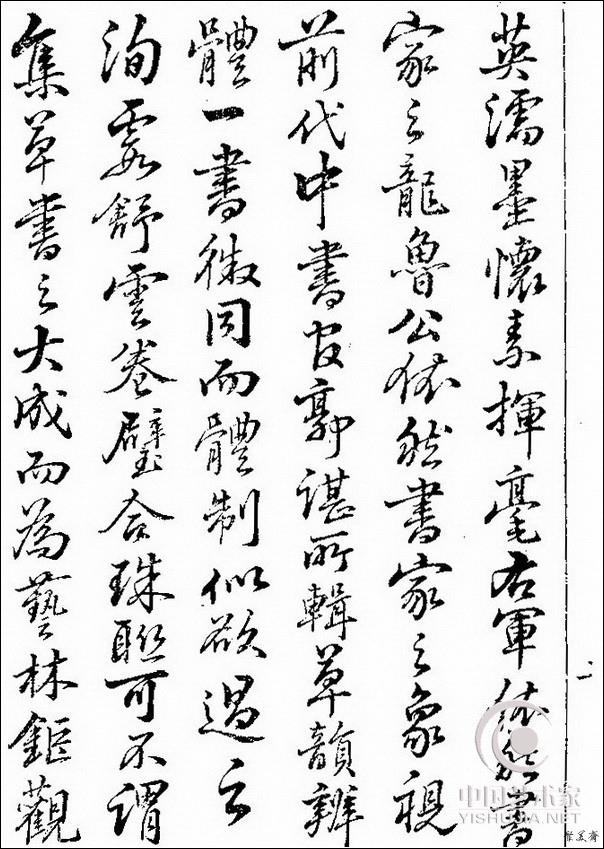 英濡墨懷素揮毫右軍依然書
家之龍魯公依然書家之象視
前代中書官郭諶所輯草韻辨
體一書微同而體制似欲過之
洵霞舒雲卷璧合珠聯可不謂
集草書之大成而為藝林鉅觀
中国艺术家
YISHUJIA.NET